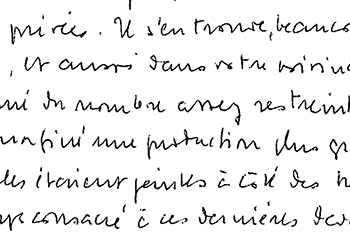 privées. Il s'en trouve, beauco
, et aussi dans votre voisin
du nombre assez restreint
une production plus gr
les étaient peintes à côté des
consacré à ces dernières des